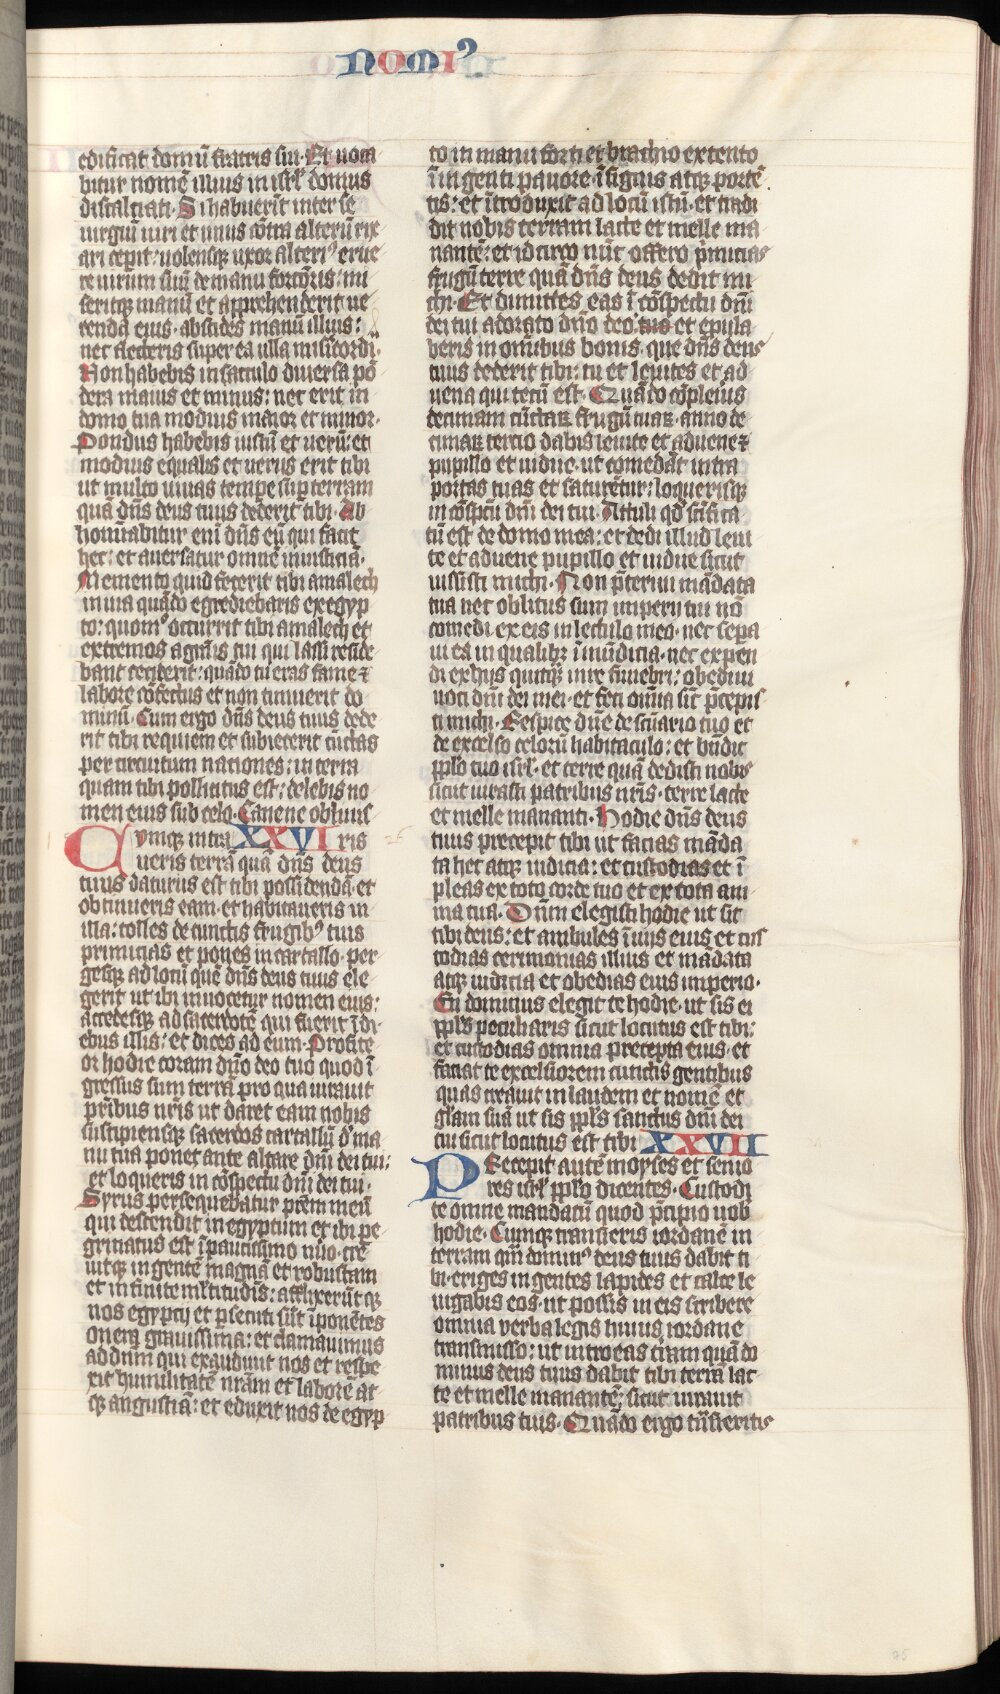 nomiꝰ
edificat domū fratris sui. Et uoca
bitur nomē illius in isrl̄ domus
discalciati. Si habuerīt inter se
uirgiū uiri et unus cōtra alterū rix
ari ceperit: uolensqꝫ uxor alteriꝰ erue
re uirum suū de manu forcōris: mi
seritqꝫ manū et apprehenderit ue
renda eius. abscides manū illius:
nec flecteris super eā ulla misīcordi.
Non habebis in sacculo diuersa pō
dera maius et minus: nec erit in
domo tua modius maior et minor.
Pondus habebis iustū et uerū: et
modius equalis et uerus erit tibi
ut multo uiuas tempe sup terram
quā dn̄s deus tuus dederit tibi. Ab
hominabitur eni dn̄s eū qui facit
hec: et auersatur omnē iniusticiā.
Memento quid fecerit tibi amalech
in uia quādo egrediebaris ex egyp
to: quomº occurrit tibi amalech et
extremos agmīs tui qui lassi reside
bant ceciderit: quādo tu eras fame ⁊
labore cōfectus et non timuerit do
minū. Cum ergo dn̄s deus tuus dede
rit tibi requiem et subiecerit cūctas
per circuitum nationes: in terra
quam tibi pollicitus est: delebis no
men eius sub celo. Caue ne obliuis
Cumqꝫ intra XXVI ris
ueris terrā quā dn̄s deus
tuus daturus est tibi possidendā. et
obtinueris eam. et habitaueris in
illa: tolles de cunctis frugibꝰ tuis
primicias et pones in cartallo. per
gesqꝫ ad locū quē dn̄s deus tuus ele
gerit ut ibi inuocetur nomen eius:
accedesqꝫ ad sacerdotē qui fuerit ī di
ebus illis: et dices ad eum. Profite
or hodie coram dn̄o deo tuo quod ī
gressus sum terrā pro qua iurauit
pr̄ibus nr̄is ut daret eam nobis
suscipiensqꝫ sacerdos cartallū d̄ ma
nu tua ponet ante altare dn̄i dei tui:
et loqueris in cōspectu dn̄i dei tui.
Syrus persequebatur pr̄em meū
qui descendit in egyptum et ibi pe
grinatus est ī paucissimo nūo. cre
uitqꝫ in gentē magnā et robustam
et infinite ml̄titudīs: afflixerūtqꝫ
nos egyptij et ꝑsecuti sūt īponētes
onera grauissima: et clamauimus
ad dn̄m qui exaudiuit nos et respe
xit humilitatē nr̄am et laborē at
qꝫ angustiā: et eduxit nos de egyp
to in manu forti et brachio extento
ī ingenti pauore. ī signis atqꝫ portē
tis: et ītroduxit ad locū istū. et tradi
dit nobis terram lacte et melle ma
nantē: et idcirco nūc offero p̄micias
frugū terre quā dn̄s deus dedit mi
chi. Et dimittes eas ī cōspectu dn̄i
dei tui adorato dn̄o deo tuo et epula
beris in omībus bonis. que dn̄s deus
tuus dederit tibi: tu et leuites et ad
uena qui tecū est. Quādo cōpleuis
decimam cūctaꝝ frugū tuaꝝ. anno de
cimaꝝ tercio dabis leuite et aduene ⁊
pupillo et uidue. ut comedāt intra
portas tuas et saturētur: loquerisqꝫ
in cōspcū dn̄i dei tui. Attuli qd̄ scīfica
tū est de domo mea: et dedi illud leui
te et aduene pupillo et uidue sicut
iussisti michi. Non p̄teriui mādata
tua nec oblitus sum imperij tui nō
comedi ex eis in lectulo meo. nec sepa
ui ea in qualibꝫ īmūdicia. nec expen
di ex hijs quicqꝫ in re funebri: obediui
uoci dn̄i dei mei. et feci omīa sic̄ p̄cepis
ti michi. Respice dn̄e de scūario tuo et
de excelso celorū habitaculo: et bn̄dic
ppl̄o tuo isrl̄. et terre quā dedisti nobis
sicut iurasti patribus nr̄is. terre lacte
et melle mananti. Hodie dn̄s deus
tuus precepit tibi ut facias māda
ta hec atqꝫ iudicia: et custodias et ī
pleas ex toto corde tuo et ex tota ani
ma tua. Dn̄m elegisti hodie ut sit
tibi deus: et ambules ī uijs eius et cus
todias cerimonias illius et mādata
atqꝫ iudicia et obedias eius imperio.
En dominus elegit te hodie. ut sis ei
ppl̄s peculiaris sicut locutus est tibi:
et custodias omnia precepta eius. et
faciat te excelsiorem cunctis gentibus
quas creauit in laudem et nomē et
gl̄iam suā ut sis ppl̄s sanctus dn̄i dei
tui sicut locutus est tibi XXVII
Precepit autē moyses et senio
res isrl̄ ppl̄o dicentes. Custodi
te omne mandatū quod p̄cipio uob̄
hodie. Cumqꝫ transieris iordanē in
terram qm̄ dominꝰ deus tuus dabit ti
bi. eriges ingentes lapides et calce le
uigabis eos. ut possis in eis scribere
omnia verba legis huius iordane
transmisso: ut introeas t̄ram quā do
minus deus tuus dabit tibi terrā lac
te et melle manantē. sicut iurauit
patribus tuis. Quādo ergo tn̄sieritis
75